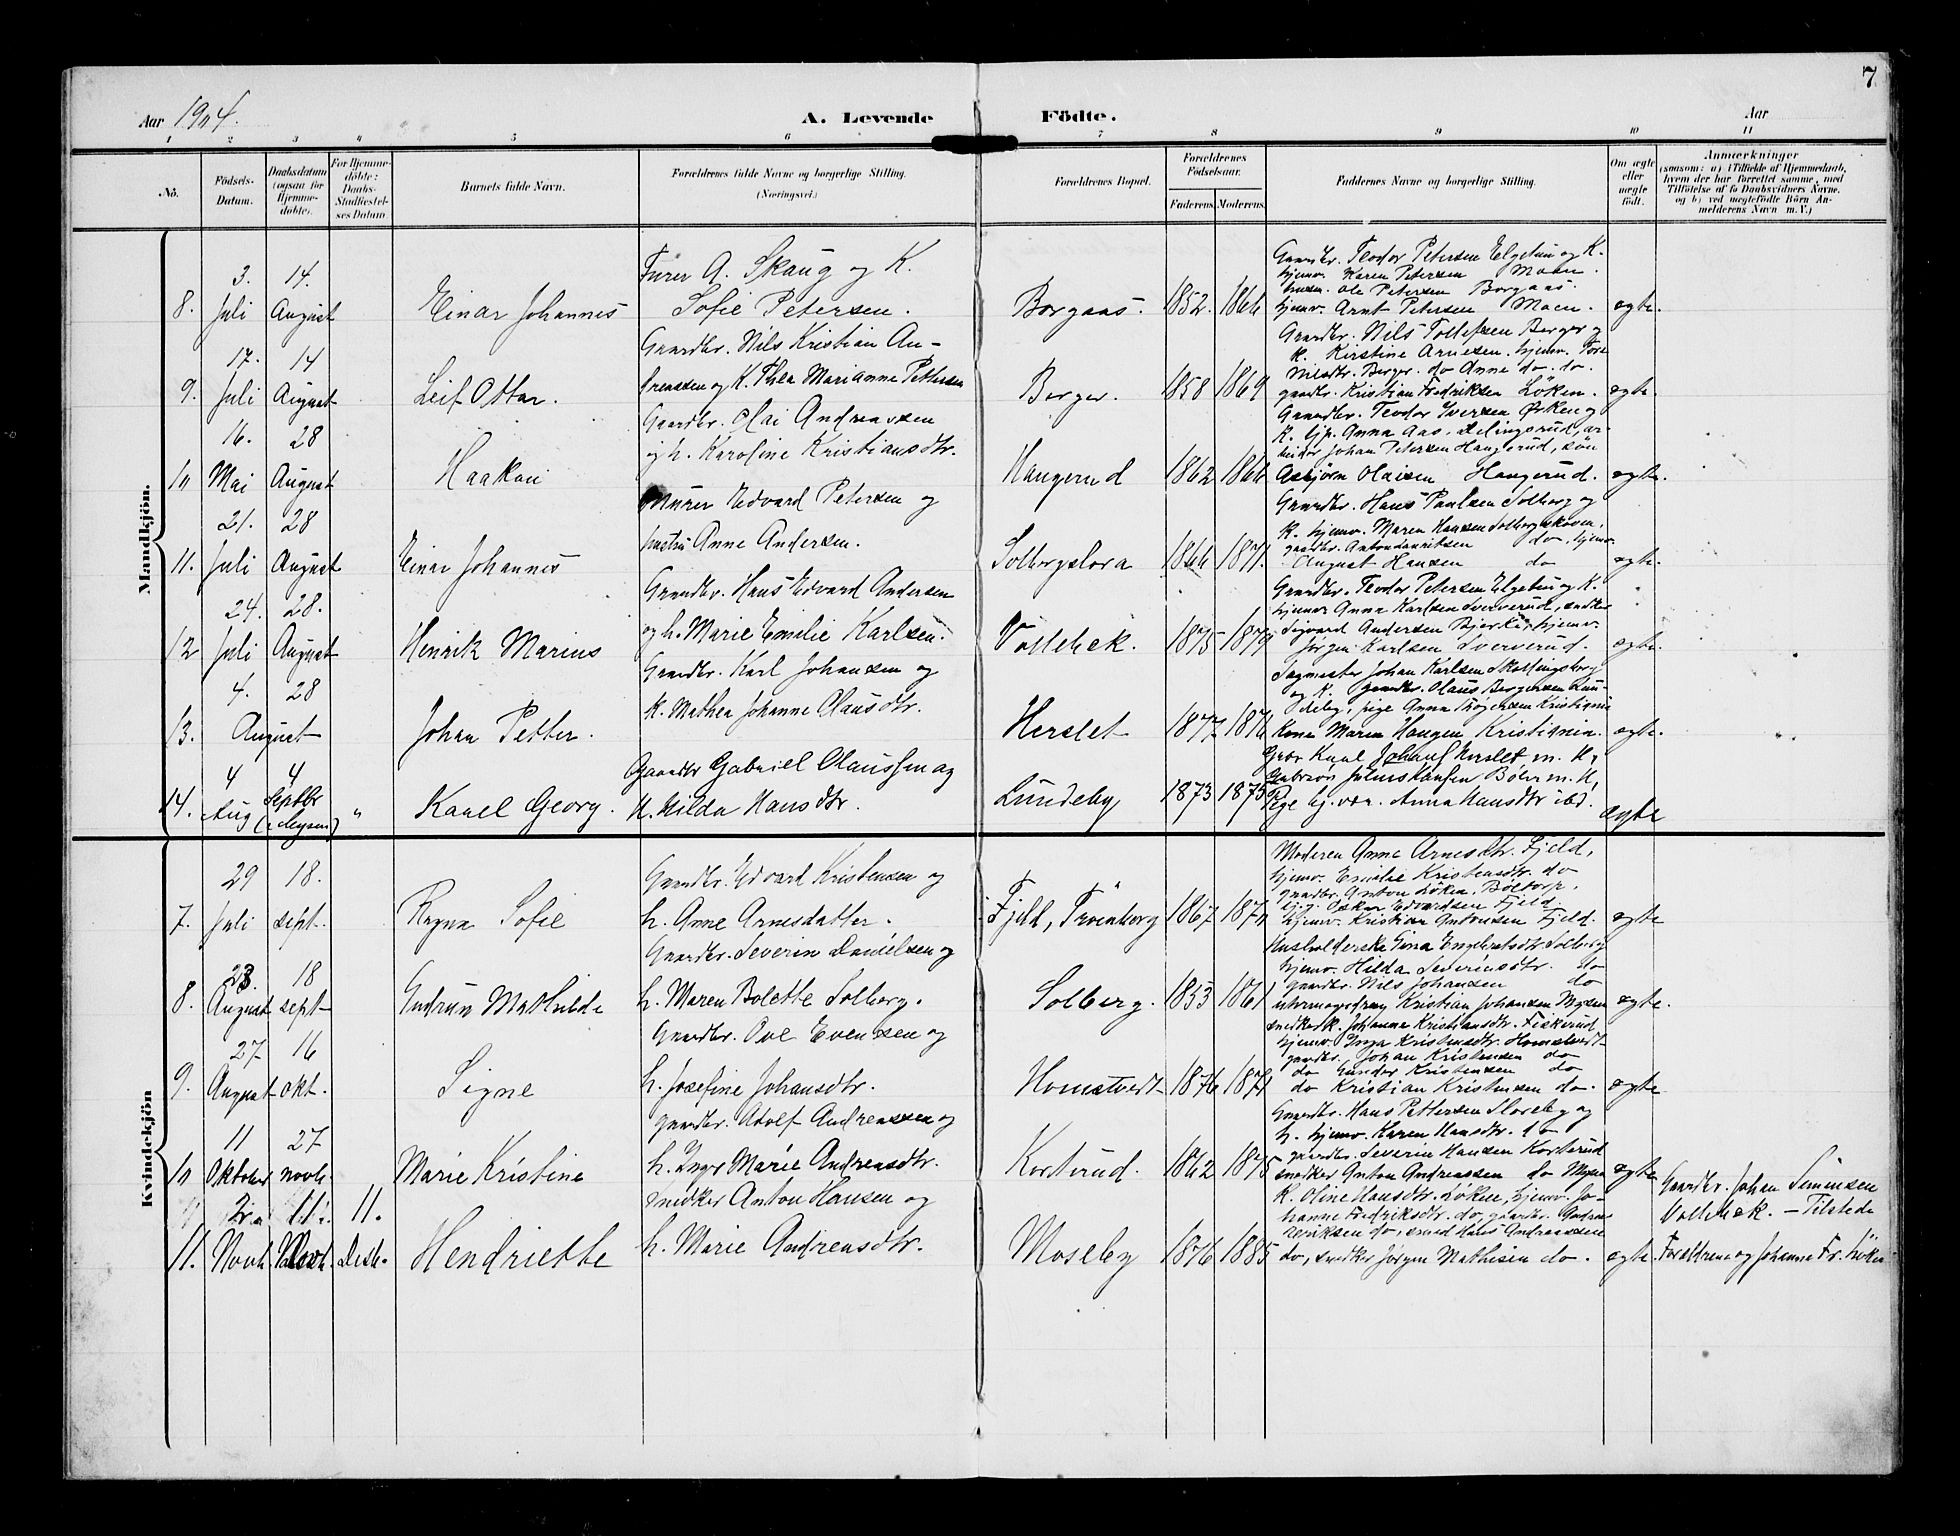 7
Aar 1904.
A. Levende Födte.
Aar
1 2 3 4 5 6 7 8 9 10 11
Nô.
Födsels-Datum.
Daabsdatum (ogsaa för Hjemme-döbte).
For Hjemme-döbte: Daabs-Stadfæstel-ses Datum
Barnets fulde Navn.
Forældrenes fulde Navne og borgerlige Stilling. (Næringsvei.)
Forældrenes Bopæl.
Forældrenes Födselsaar.
Faderens. Moderens.
Faddernes Navne og borgerlige Stilling.
Om ægte eller uægte födt.
Anmærkninger
(saasom: a) i Tilfælde af Hjemmedaab, hvem der har forrettet samme, med Tilföielse af to Daabsvidners Navne. og b) ved uægtefödte Börn An-melderens Navn m. V.)
Mandkjön.
8. 3. Juli 14. August Einar Johannes
Furer A. Skaug og K.
Sofie Petersen.
Borgaas. 1852. 1866
Gaardbr. Teodor Petersen Elgetun og K.
hjemv. Karen Petersen Moen.
husm. Ole Petersen Borgaas
hjemv. Arnt Petersen Moen. ægte.
9. 17. Juli 14 August Leif Ottar.
Gaardbr. Nils Kristian An-
drensen og K. Thea Marianne Pettersen
Berger. 1858 1869
Gaardbr. Nils Tollefsen Berger og
K. Kirstine Arnesen. hjemv. Tore
Nilsdtr. Berger. do Anne do. do.
gaardbr. Kristian Fredriksen Löken. ægte.
10 16. Mai 28 August Haakon
Gaardbr. Olai Andreassen
og h. Karoline Kristiansdtr.
Haugerud 1862 1866
Gaardbr. Teodor Iversen Ørken og
K. tjp. Anna Aas, Delingsrud, ar-
beider Johan Petersen Haugerud, sön
Asbjörn Olaisen Haugerud. ægte.
11. 21. Juli 28 August Einar Johannes
Murer Edvard Petersen og
hustru Anne Andersen.
Solbergslora 1866 1871.
Gaardbr. Hans Paulsen Solberg og
K. hjemv. Maren Hansen Solbergskoven,
gaardbr. Anton Lauritsen do, hjemv.
August Hansen do ægte.
12 24. Juli 28. August Henrik Marius
Gaardbr. Hans Edvard Andersen
og h. Marie Emilie Karlsen.
Vollebæk. 1875 1879
Gaardbr. Teodor Petersen Elgetun og K.
hjemv Anna Karlsen Sververud, snedker
Sigvard Andersen Bjerke, hjemv.
Jörgen Karlsen Sververud. ægte.
13. 4. August 28 Johan Petter.
Gaardbr. Karl Johansen og
K. Mathea Johanne Olausdtr.
Herslet 1877 1876
Sagmester Johan Karlsen Skollingsberg
og K. gaardbr. Olaus Bergersen Lun-
deby, pige Anna Thögersen Kristiania
Kone Maren Haugen Kristiania. ægte.
14. 4 Aug 4 Septbr (i Mysen) " Karel Georg.
Gaardbr Gabriel Olaussen og
H. Hilda Hansdtr.
Lundeby 1873 1875
Grbr Karl Johans Herslet m. H,
Gabrson Julius Hansen Böhr m. H,
Pige hj. vær. Anna Hansdtr ibd. ægte
Kvindekjön
7. 29 Juli 18. sept. Ragna Sofie
Gaardbr. Edvard Kristensen og
h. Anne Arnesdatter.
Fjeld, Trömborg 1867 1870
Moderen Anne Arnesdtr. Fjeld,
hjemv. Emilie Kristensdtr. do
gaardbr. Anton Löken, Böltorp,
tjg. Oskar Edvardsen Fjeld
hjemv. Kristian Antonsen Fjeld. ægte
8. 23. August 18 sept Gudrun Mathilde
Gaardbr. Severin Danielsen og
h. Maren Bolette Solberg.
Solberg. 1853 1861
Husholderske Gina Engebretsdtr Solberg
hjemv. Hilda Severinsdtr. do
gaardbr. Nils Johansen do
uhrmagerdreng Kristian Johansen Mysen ægte.
9. 27 August 16 okt. Signe
Gaardbr. Ove Evensen og
h. Josefine Johansdtr.
Homstvedt 1876 1871
snedker K. Johanne Kristiansdtr. Fiskerud
hjemv. Inga Kristensdtr. Homstvedt
gaardbr. Johan Kristensen do
do Gunder Kristensen do
do Kristian Kristensen do. ægte
10 11 Oktober 27 novb. Marie Kristine
gaardbr. Adolf Andreassen og
h. Inger Marie Andreasdtr.
Korterud. 1862 1875
Gaardbr. Hans Pettersen Sloreby og
h. hjemv. Karen Hansdtr. do
gaardbr. Severin Hansen Korterud
snedker Anton Andreassen do Mysen ægte
11. Novb. Novb. 11. Desb. Hendriette
Snedker Anton Hansen og
h. Marie Andreasdtr.
Moseby 1876 1885
K. Oline Hansdtr. Löken, hjemv. Jo-
hanne Fredriksdtr. do, gaardbr. Andreas
Henriksen do, smed Hans Andreassen
do, snedker Jörgen Mathisen do. ægte.
Gaardbr. Johan Simensen
Vollebæk. – Tilstede
Forældrene og Johanne Fr. Löken